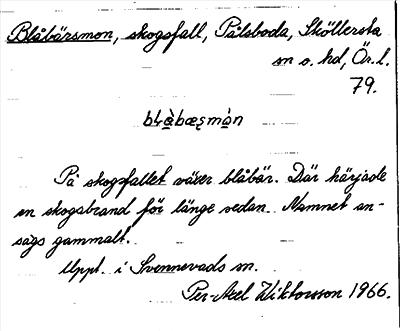 Blåbärsmon, skogsfall, Pålsboda, Sköllersta
sn o. hd, Ör. l.
79.
På skogsfallet växer blåbär. Där härjade
en skogsbrand för länge sedan. Namnet an-
sågs gammalt.
Uppt. i Svennevads sn.
Per-Axel Wiktorsson 1966.